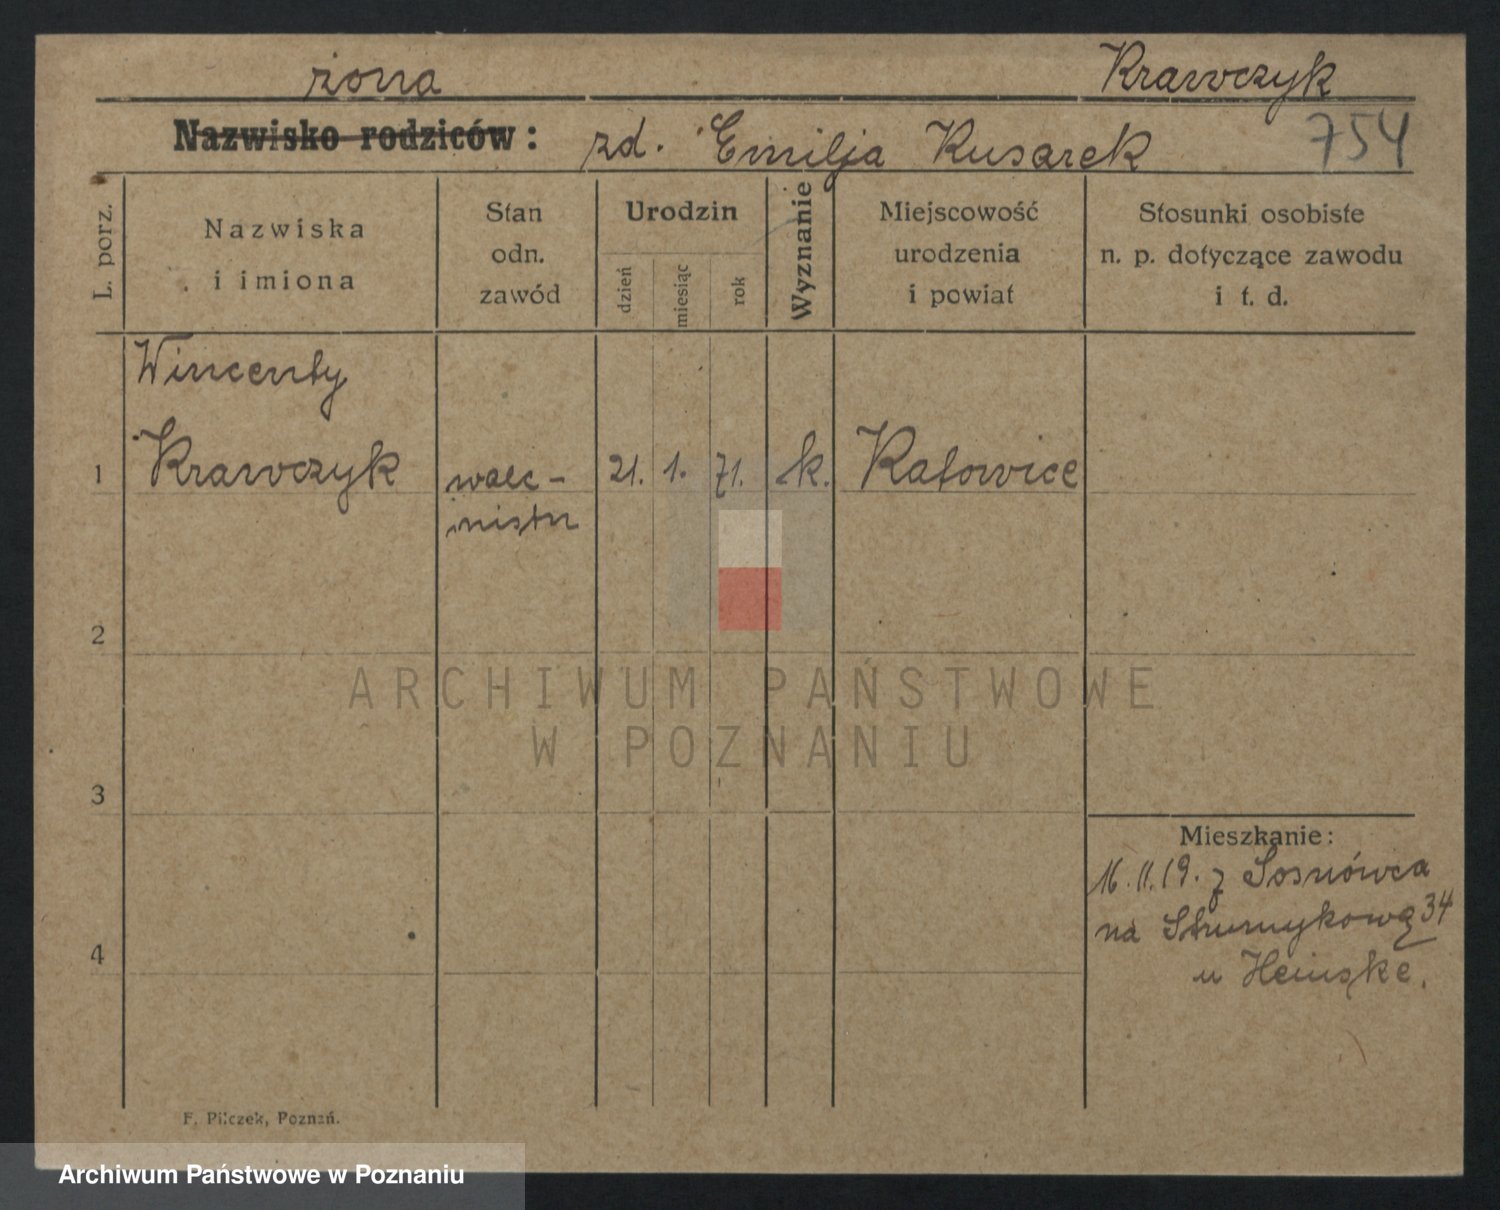 żona Krawczyk
Nazwisko rodziców: zd. Emilja Kusarek 754
L. porz.
Nazwiska
i imiona
Stan
odn.
zawód
Urodzin
dzień
miesiąc
rok
Wyznanie
Miejscowość
urodzenia
i powiat
Stosunki osobiste
n. p. dotyczące zawodu
i t. d.
Wincenty
1 Krawczyk walc- 21. 1. 71. k. Katowice
mistrz
2
ARCHIWUM PAŃSTWOWE
W POZNANIU
3
Mieszkanie:
16.11.19. z Sosnówca
na Strumykową 34
4
u Heinske.
F. Pilczek, Poznań.
Archiwum Państwowe w Poznaniu